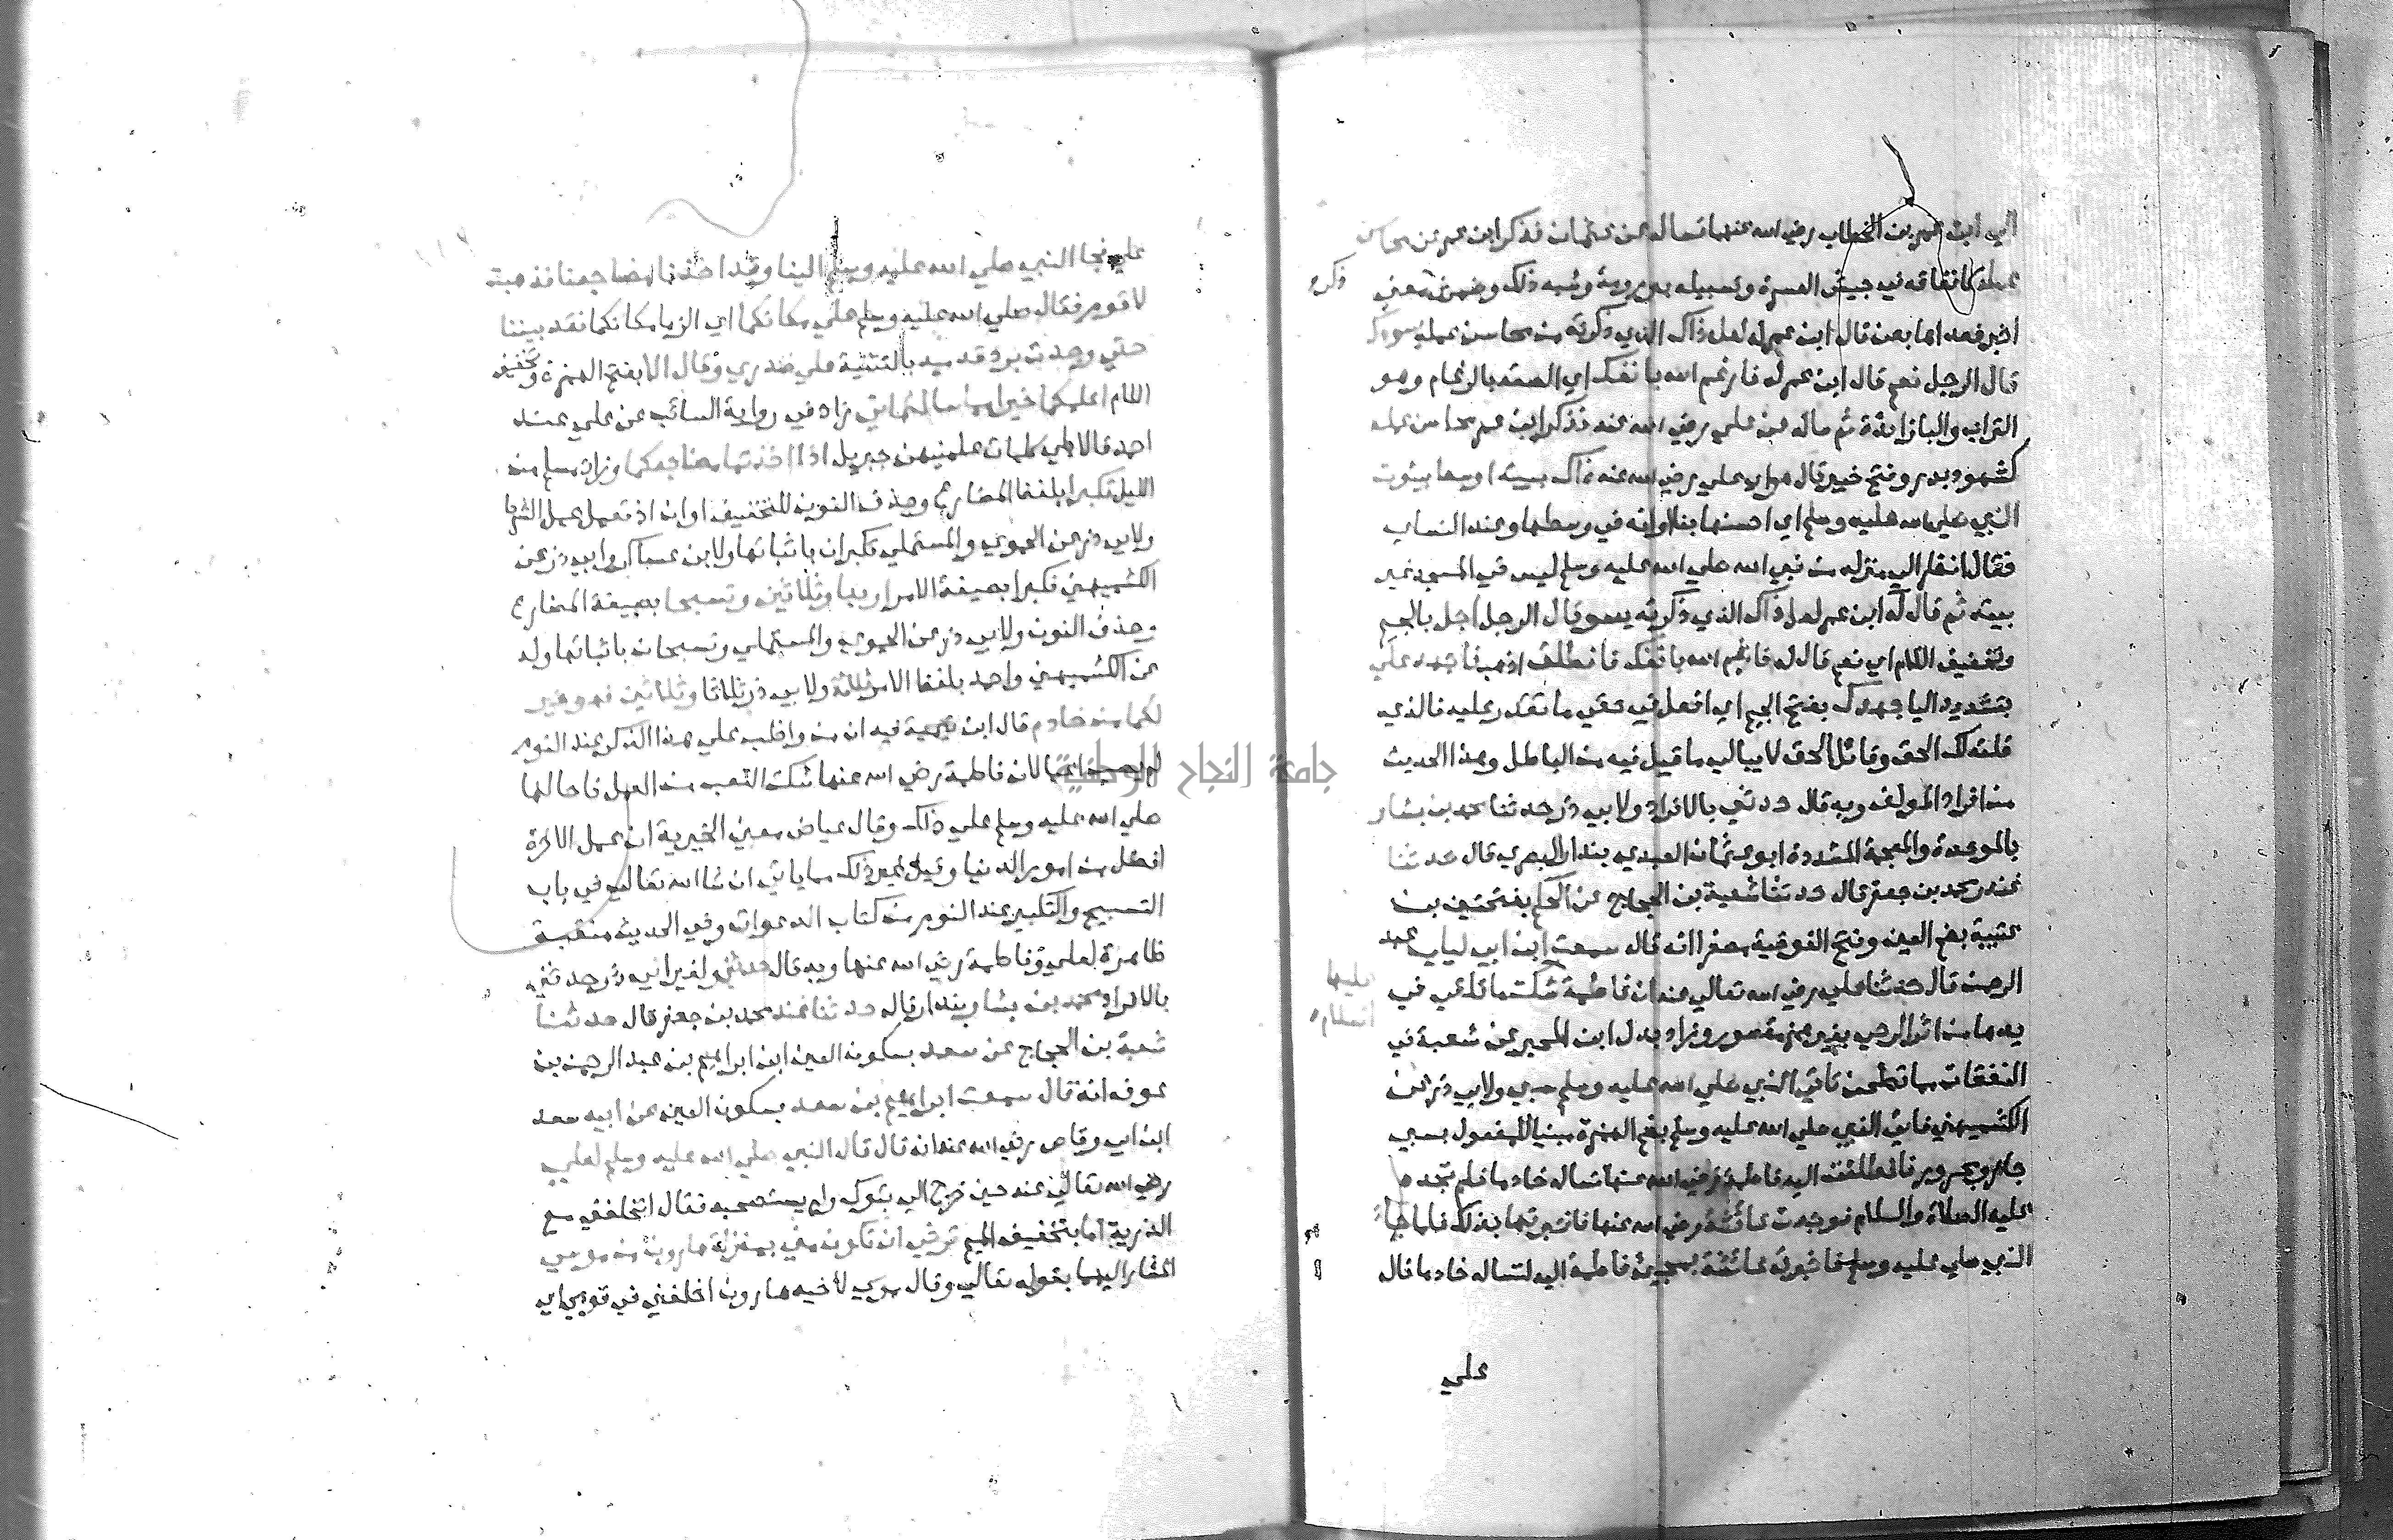 الى ابن عمر بن الخطاب رضي الله عنهما فساله عن عثمان فذكر ابن عمر عن محاسن
عمله كانفاقه في جيش العسرة وتسبيله بير رومة وشبه ذلك وضمن معنى
ذكر
اخبر فعداها بعن قال ابن عمر له لعل ذاك الذي ذكرته من محاسن عمله يسوءك
قال الرجل نعم قال ابن عمر له فارغم الله بانفك اي الصقه بالرغام وهو
التراب والبا زائدة ثم ساله عن علي رضي الله عنه فذكر ابن عمر محاسن عمله
كشهوده بدر وفتح خيبر قال هو اي علي رضي الله عنه ذاك بيته اوسط بيوت
النبي صلي الله عليه وسلم اي احسنها بنا او انه في وسطها وعند النساي
فقال انظر الي منزله من نبي الله صلي الله عليه وسلم ليس في المسجد غير
بيته ثم قال له ابن عمر لعل ذاك الذي ذكرته يسوءك قال الرجل اجل بالجيم
وتخفيف اللام اي نعم قال له فارغم الله بانفك فانطلق اذهب فاجهد علي
بتشديد اليا جهدك بفتح الجيم اي افعل في حقي ما تقدر عليه فالذي
قلته لك الحق وقائل الحق لا يبالي ما قيل فيه من الباطل وهذا الحديث
من افراد المولف وبه قال حدثني بالافراد ولابي ذر حدثنا محمد بن بشار
بالموحدة والمعجمة المشددة ابو عثمان العبدي بندار البصري قال حدثنا
غندر محمد بن جعفر قال حدثنا شعبة بن الحجاج عن الحكم بفتحتين بن
عتيبة بضم العين وفتح الفوقية مصغرا انه قال سمعت ابن ابي ليلي عبد
الرحمن قال حدثنا علي رضي الله تعالي عنه ان فاطمة شكت ما تلقي في
عليها
السلام
يدها من اثر الرحي بغير همز مقصور وزاد بدل ابن المحبر عن شعبة في
النفقات مما تطحن فاتي النبي صلي الله عليه وسلم سبي ولابي ذر عن
الكشميهني فاتي النبي صلي الله عليه وسلم بضم الهمزة مبنيا للمفعول بسبي
جار ومجرور فانطلقت اليه فاطمة رضي الله عنها تساله خادما فلم تجده
عليه الصلاة والسلام فوجدت عائشة رضي الله عنها فاخبرتها بذلك فلما جاء
النبي صلي عليه وسلم فاخبرته عائشة بمجيئ فاطمة اليه لتساله خادما قال
علي
علي فجا النبي صلي الله عليه وسلم الينا وقد اخذنا مضاجعنا فذهبت
لاقوم فقال صلي الله عليه وسلم علي مكانكما اي الزما مكانكما فقعد بيننا
حتي وجدت برد قدميه بالتثنية علي صدري وقال الا بفتح الهمزة وتخفيف
اللام اعلمكما خيرا مما سالتماني زاد في رواية السائب عن علي عند
احمد قالا بلي كلمات علمنيهن جبريل اذا اخذتما مضاجعكما وزاد مسلم من
الليل تكبرا بلفظ المضارع وحذف النون للتخفيف او ان اذ تعمل عمل الشرط
ولابي ذر عن الحموي والمستملي تكبران باثباتها ولابن عساكر وابي ذر عن
الكشميهني فكبرا بصيغة الامر اربعا وثلاثين وتسبحا بصيغة المضارع
وحذف النون ولابي ذر عن الحموي والمستملي وتسبحان باثباتها وله
عن الكشميهني واحمد بلفظ الامر ثلاثة ولابي ذر ثلاثا وثلاثين فهو خير
لكما من خادم قال ابن تيمية فيه ان من واظب علي هذا الذكر عند النوم
لم يصبه اعيا لان فاطمة رضي الله عنها شكت التعب من العمل فاحالها
صلي الله عليه وسلم علي ذلك وقال عياض معني الخيرية ان عمل الاخرة
افضل من امور الدنيا وقيل غير ذلك مما ياتي ان شا الله تعالي في باب
التسبيح والتكبير عند النوم من كتاب الدعوات وفي الحديث منقبة
ظاهرة لعلي وفاطمة رضي الله عنها وبه قال حدثنا ولغير ابي ذر حدثني
بالافراد محمد بن بشار بندار قال حدثنا غندر محمد بن جعفر قال حدثنا
شعبة بن الحجاج عن سعد بسكون العين ابن ابراهيم بن عبد الرحمن بن
عوف انه قال سمعت ابراهيم بن سعد بسكون العين عن ابيه سعد
ابن ابي وقاص رضي الله عنه انه قال قال النبي صلي الله عليه وسلم لعلي
رضي الله تعالي عنه حين خرج الي تبوك ولم يستصحبه فقال اتخلفني مع
الذرية اما بتخفيف الميم ترضي ان تكون مني بمنزلة هارون من موسي
المشار اليهما بقوله تعالي وقال موسي لاخيه هارون اخلفني في قومي اي
جامعة النجاح الوطنية